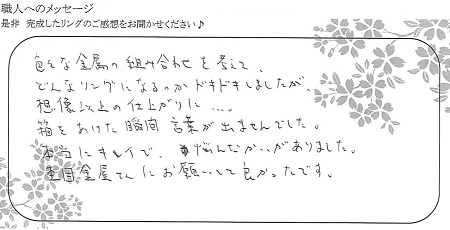 職人へのメッセージ
是非 完成したリングのご感想をお聞かせください♪
色々な金属の組み合わせを考えて、
どんなリングになるのかドキドキしましたが、
想像以上の仕上がりに…。
箱をあけた瞬間 言葉が出ませんでした。
本当にキレイで、悩んだかいがありました。
杢目金屋さんにお願いして良かったです。